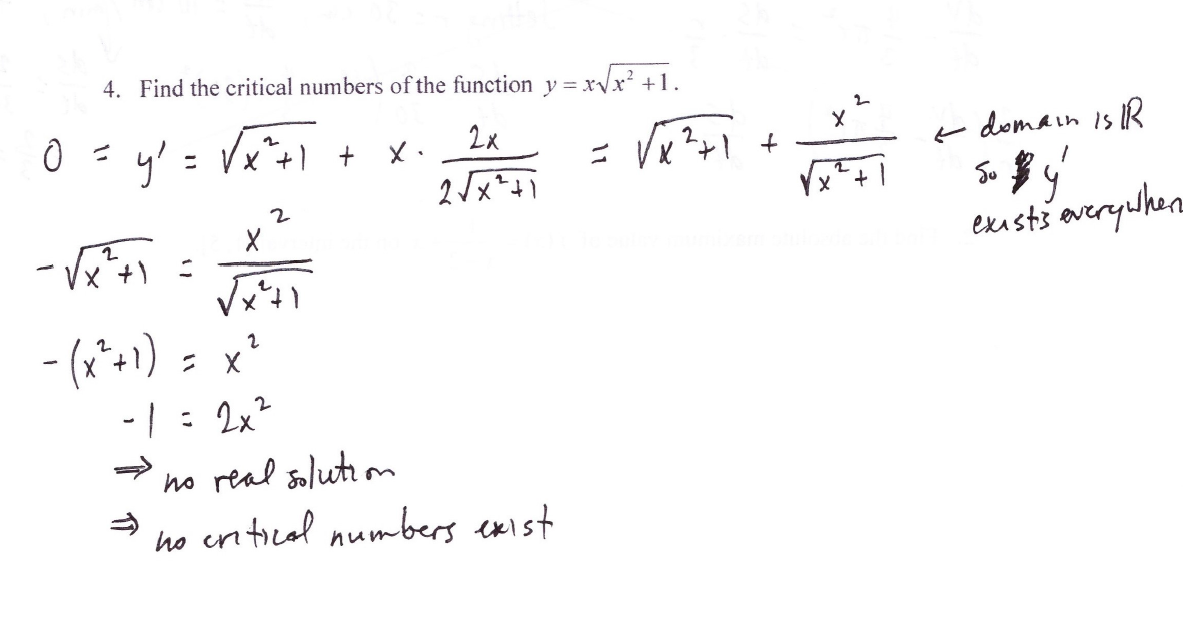 4. Find the critical numbers of the function y = x√(x² + 1).
0 = y' = √(x²+1) + x · 2x / (2√(x²+1)) = √(x²+1) + x² / √(x²+1) ← domain is ℝ
so y'
exists everywhere
-√(x²+1) = x² / √(x²+1)
-(x²+1) = x²
-1 = 2x²
⇒ no real solution
⇒ no critical numbers exist